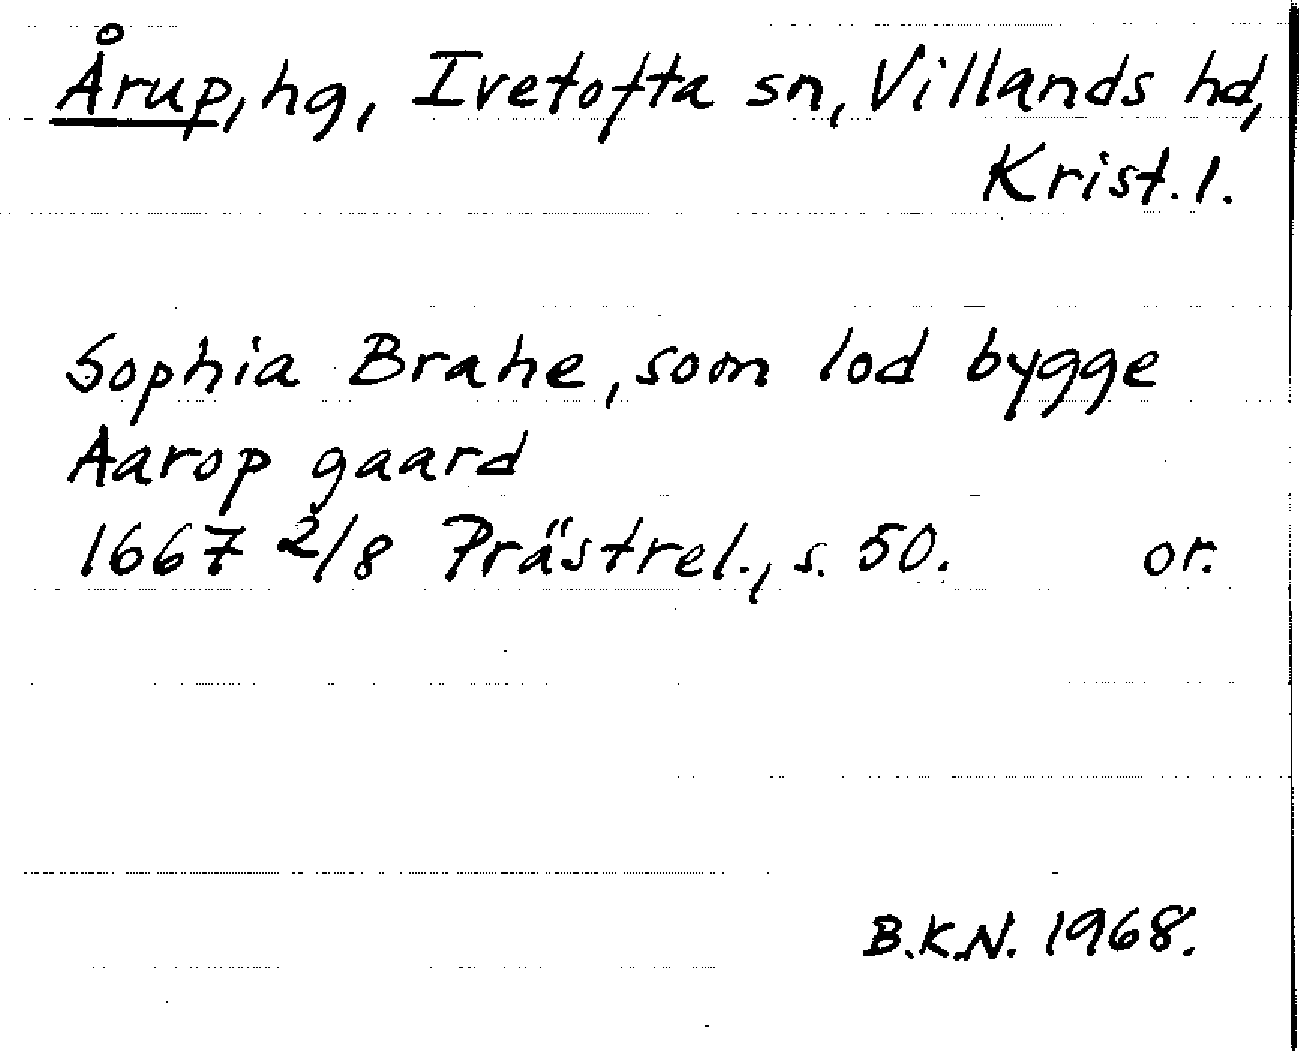 Årup, hg, Ivetofta sn, Villands hd,
Krist. l.
Sophia Brahe, som lod bygge
Aarop gaard
1667 2/8 Prästrel., s. 50. or.
B.K.N. 1968.